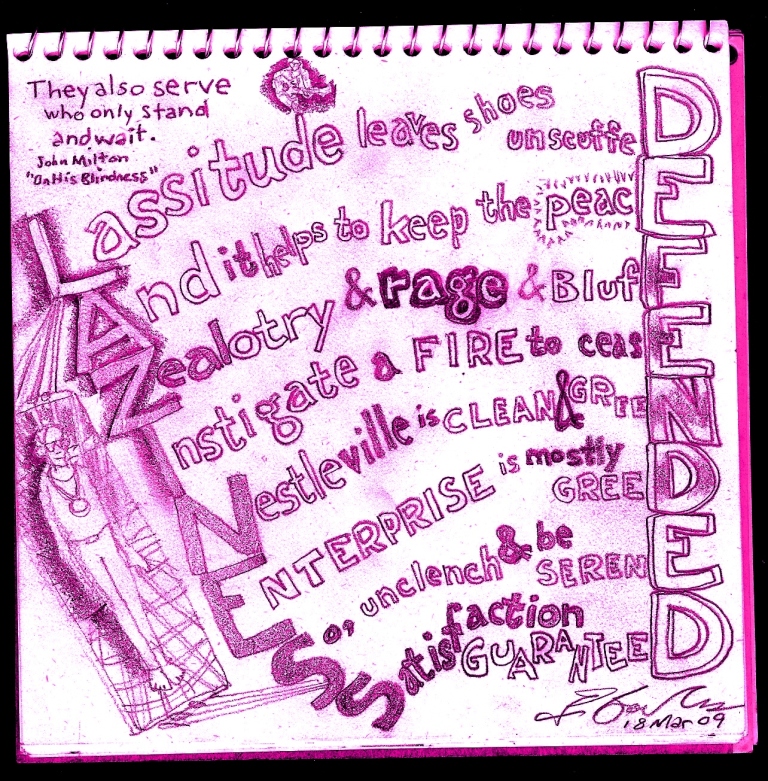 They also serve
who only stand
and wait.
John Milton
"On His Blindness"
Lassitude leaves shoes unscuffeD
And it helps to keep the peacE
Zealotry & rage & BlufF
Instigate a FIRE to ceasE
Nestleville is CLEAN & GREEN
ENTERPRISE is mostly GREED
So, unclench & be SERENE
Satisfaction GUARANTEED
18 Mar 09